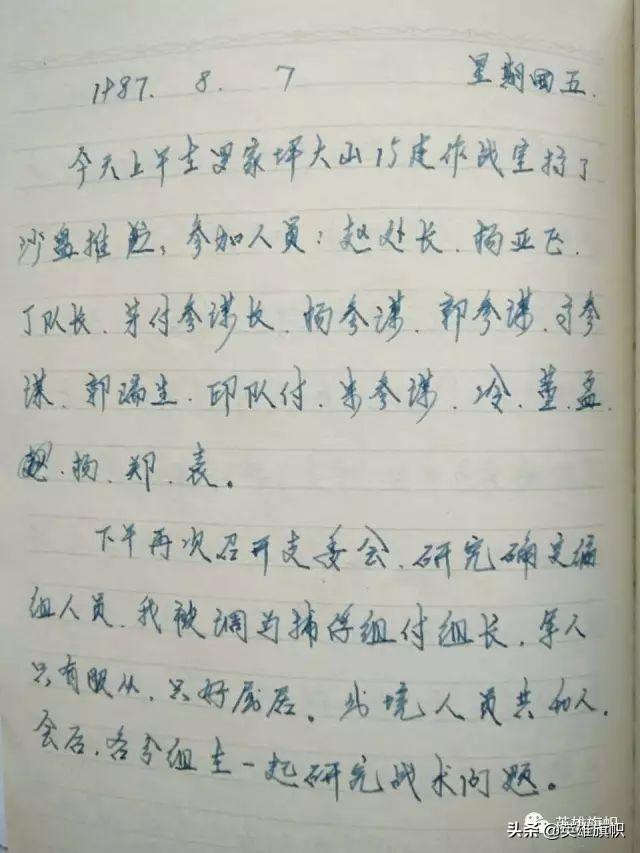 1987. 8. 7 星期四五.
今天上午在罗家坪大山15连作战室搞了
沙盘推演,参加人员:赵处长.杨亚飞.
丁队长.付参谋长.杨参谋.郭参谋.参
谋.郭瑞生.印队付.朱参谋.冷.董.孟.
赵.杨.郑.袁。
下午再次召开支委会.研究确定编
组人员.我被调为捕俘组付组长.军人
只有服从.只好屈居。出境人员共40人.
会后,各分组在一起研究战术问题。
英雄旗帜
头条@英雄旗帜